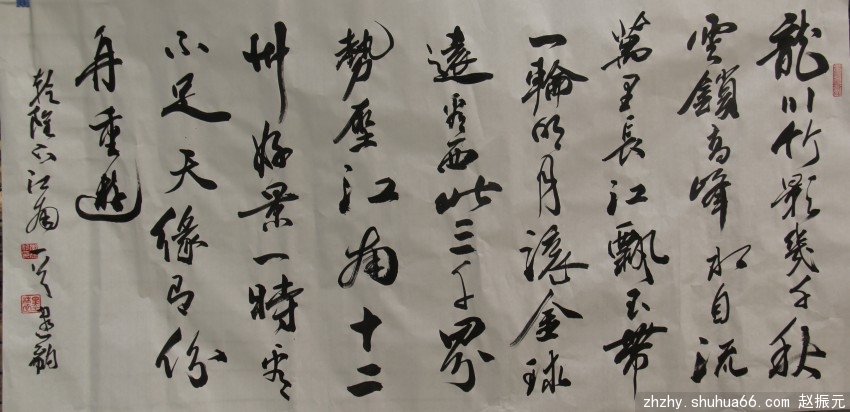 龍川竹影幾千秋
雲鎖高峰水自流
萬里長江飄玉帶
一輪明月滾金球
遠看西北三千界
勢壓江南十二
州好景一時看
不足天緣有份
再重遊
乾隆下江南
zhzhy.shuhua66.com 赵振元